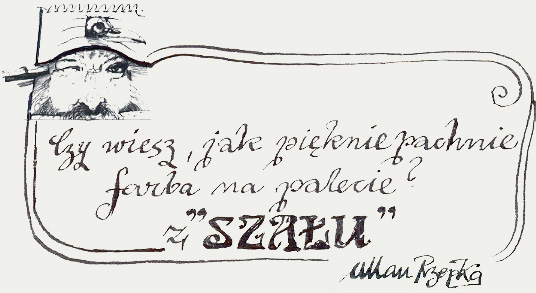 Czy wiesz, jak pięknie pachnie
farba na palecie?
z "SZAŁU"
Allan Rzepka